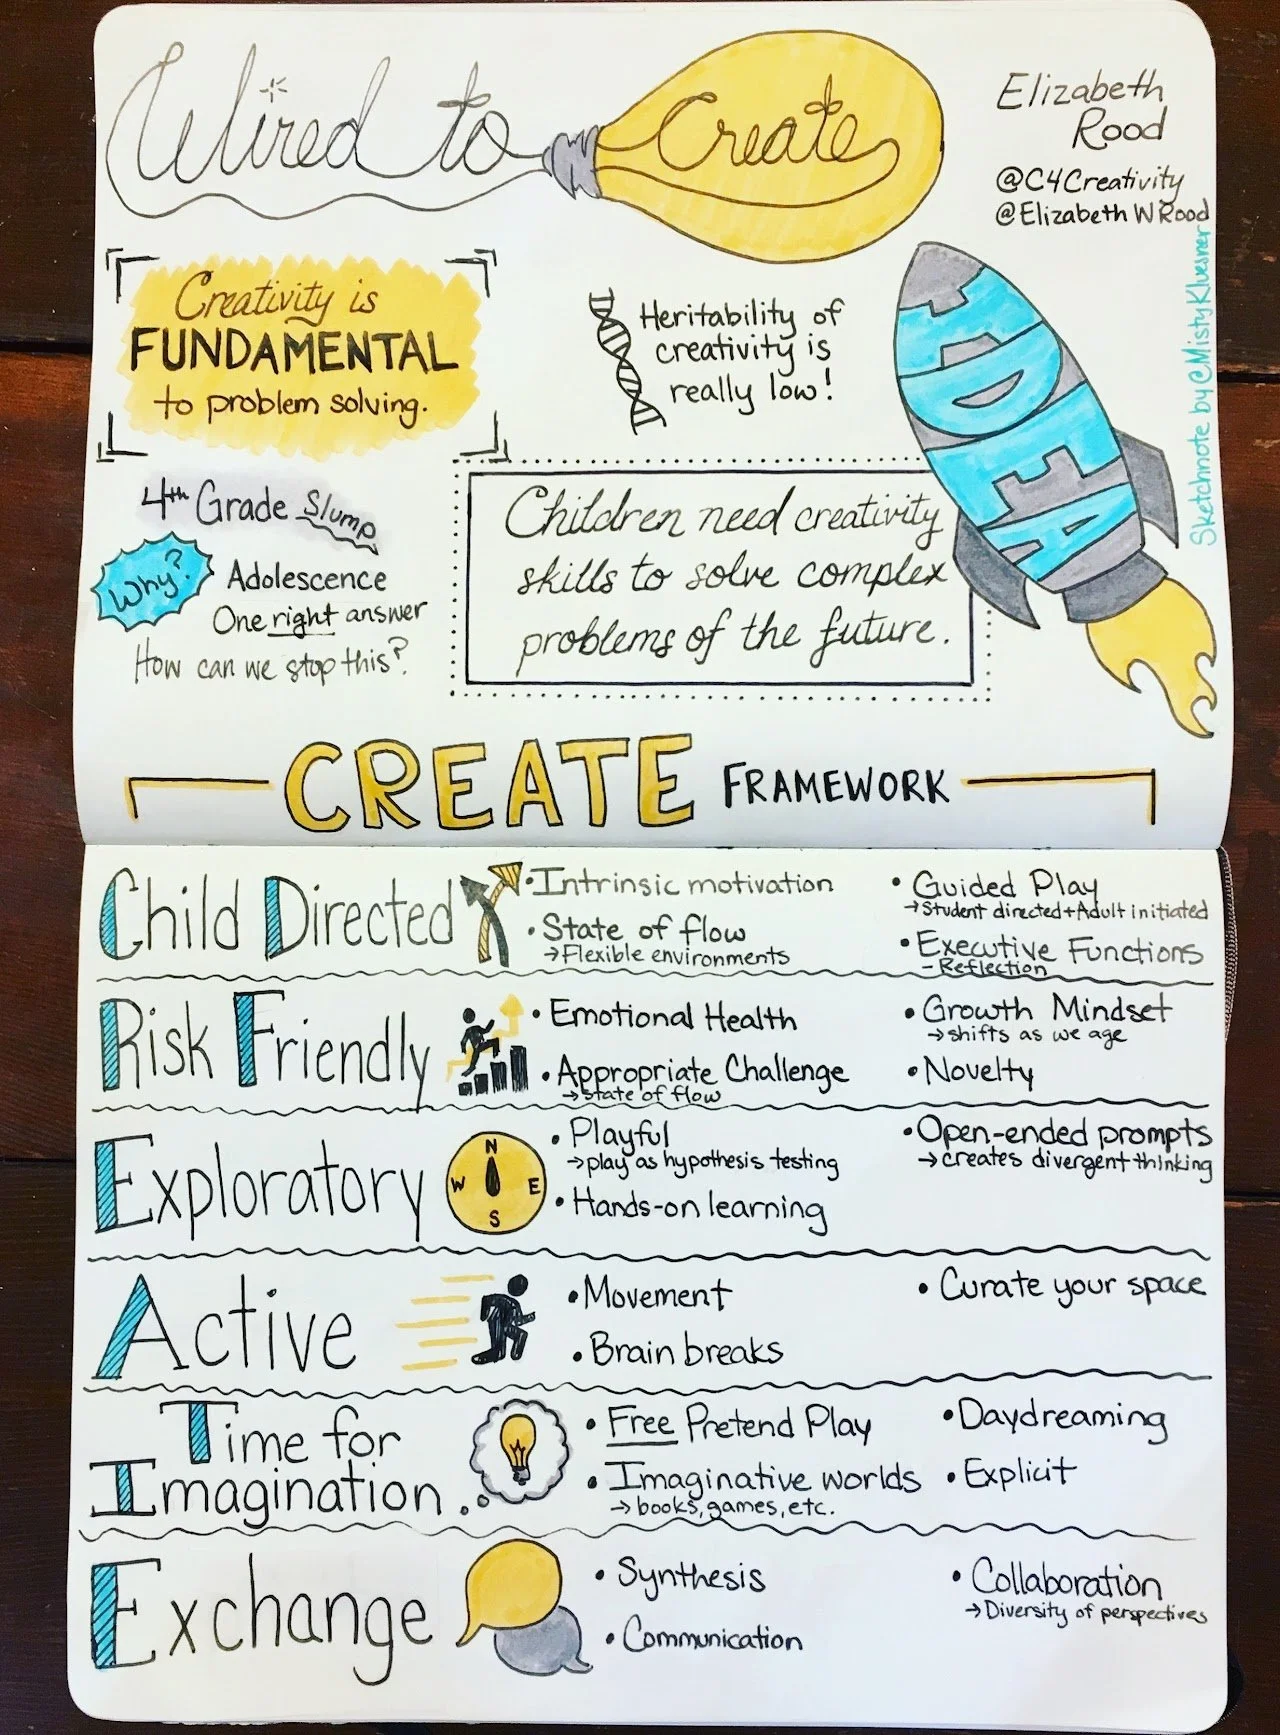 Wired to Create
Elizabeth
Rood
@C4Creativity
@ElizabethWRood
Sketchnote by @MistyKluesner
Creativity is
FUNDAMENTAL
to problem solving.
Heritability of
creativity is
really low!
IDEA
4th Grade Slump
Why?
Adolescence
One right answer
How can we stop this?
Children need creativity
skills to solve complex
problems of the future.
CREATE FRAMEWORK
Child Directed
• Intrinsic motivation
• State of flow
→ Flexible environments
• Guided Play
→ Student directed + Adult initiated
• Executive Functions
- Reflection
Risk Friendly
• Emotional Health
• Appropriate Challenge
→ State of flow
• Growth Mindset
→ shifts as we age
• Novelty
Exploratory
N
W E
S
• Playful
→ play as hypothesis testing
• Hands-on learning
• Open-ended prompts
→ creates divergent thinking
Active
• Movement
• Brain breaks
• Curate your space
Time for
Imagination
• Free Pretend Play
• Imaginative worlds
→ books, games, etc.
• Daydreaming
• Explicit
Exchange
• Synthesis
• Communication
• Collaboration
→ Diversity of perspectives